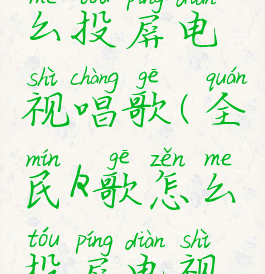 me tóu píng diàn
么投屏电
shì chàng gē quán
视唱歌(全
mín gē zěn me
民K歌怎么
tóu píng diàn shì
投屏电视